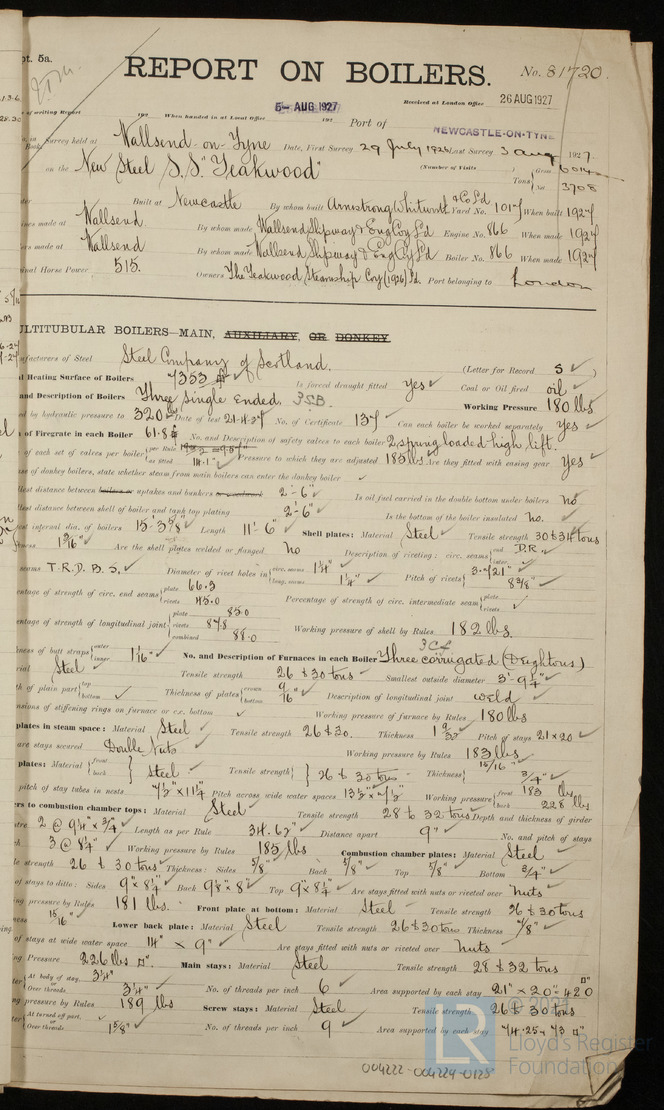 pt. 5a.
REPORT ON BOILERS.
No. 81720.
5- AUG 1927
Received at London Office 26 AUG 1927
of writing Report 192 When handed in at Local Office 192 Port of NEWCASTLE-ON-TYNE
Survey held at Wallsend-on-Tyne Date, First Survey 29 July 1926 Last Survey 3 Aug 1927
on the New Steel S.S. "Teakwood" (Number of Visits ) Gross 6014
Tons Net 3708
Built at Newcastle By whom built Armstrong Whitworth & Co Ld Yard No. 1017 When built 1927
made at Wallsend By whom made Wallsend Slipway & Eng Coy Ld Engine No. 866 When made 1927
made at Wallsend By whom made Wallsend Slipway & Eng Coy Ld Boiler No. 866 When made 1927
Horse Power 515. Owners The Teakwood Steamship Coy (1926) Ld. Port belonging to London
ULTITUBULAR BOILERS—MAIN, AUXILIARY, OR DONKEY.
Manufacturers of Steel Steel Company of Scotland. (Letter for Record S)
Heating Surface of Boilers 7353 Is forced draught fitted yes Coal or Oil fired oil
and Description of Boilers Three Single Ended. 3SB. Working Pressure 180 lbs
by hydraulic pressure to 320 Date of test 21.4.27 No. of Certificate Can each boiler be worked separately yes
of Firegrate in each Boiler 61.8 No. and Description of safety valves to each boiler 2 spring loaded high lift.
of each set of valves per boiler per Rule as fitted 14.1" Pressure to which they are adjusted 185 lbs Are they fitted with easing gear yes
of donkey boilers, state whether steam from main boilers can enter the donkey boiler
distance between boilers or uptakes and bunkers or woodwork 2'-6" Is oil fuel carried in the double bottom under boilers no
distance between shell of boiler and tank top plating 2'-6" Is the bottom of the boiler insulated no.
internal dia. of boilers 15'-3 5/8" Length 11'-6" Shell plates: Material Steel Tensile strength 30 & 34 tons
1 3/16" Are the shell plates welded or flanged no Description of riveting: circ. seams end D.R. inter.
seams T.R.D.B.S. Diameter of rivet holes in circ. seams 1 1/4" long. seams 1 1/4" Pitch of rivets 8 3/8"
percentage of strength of circ. end seams plate 66.3 rivets 45.0 Percentage of strength of circ. intermediate seam plate rivets
percentage of strength of longitudinal joint plate 85.0 rivets 87.8 combined 88.0 Working pressure of shell by Rules 182 lbs
of butt straps outer inner 1 1/16" No. and Description of Furnaces in each Boiler Three corrugated (Deightons) 3Cf
Steel Tensile strength 26 & 30 tons Smallest outside diameter 3'-9 1/4"
of plain part top bottom Thickness of plates crown bottom 9/16" Description of longitudinal joint weld
of stiffening rings on furnace or c.c. bottom Working pressure of furnace by Rules 180 lbs
plates in steam space: Material Steel Tensile strength 26 & 30. Thickness 1 9/32" Pitch of stays 21 x 20
are stays secured Double Nuts Working pressure by Rules 183 lbs
plates: Material front back Steel Tensile strength 26 & 30 tons Thickness 15/16" 3/4"
pitch of stay tubes in nests Pitch across wide water spaces 13 1/2" x 7 1/2" Working pressure front 183 lbs back 228 lbs
to combustion chamber tops: Material Steel Tensile strength 28 & 32 tons Depth and thickness of girder
2 @ 9 1/4" x 3/4" Length as per Rule 34.62" Distance apart 9" No. and pitch of stays
3 @ 8 1/4" Working pressure by Rules 185 lbs Combustion chamber plates: Material Steel
strength 26 & 30 tons Thickness: Sides 5/8" Back 5/8" Top 5/8" Bottom 3/4"
of stays to ditto: Sides 9" x 8 1/4" Back 9 1/8" x 8" Top 9" x 8 1/4" Are stays fitted with nuts or riveted over nuts
pressure by Rules 181 lbs. Front plate at bottom: Material Steel Tensile strength 26 & 30 tons
15/16" Lower back plate: Material Steel Tensile strength 26 & 30 tons Thickness 7/8"
of stays at wide water space 14" x 9" Are stays fitted with nuts or riveted over nuts
Pressure 226 lbs Main stays: Material Steel Tensile strength 28 & 32 tons
At body of stay. 3 1/4" Over threads. 3 1/4" No. of threads per inch 6 Area supported by each stay 21" x 20" = 420
pressure by Rules 189 lbs Screw stays: Material Steel Tensile strength 26 & 30 tons
At turned off part. Over threads 1 5/8" No. of threads per inch 9 Area supported by each stay 74.25
004222-004229-0125
© 2021
LR Lloyd's Register Foundation